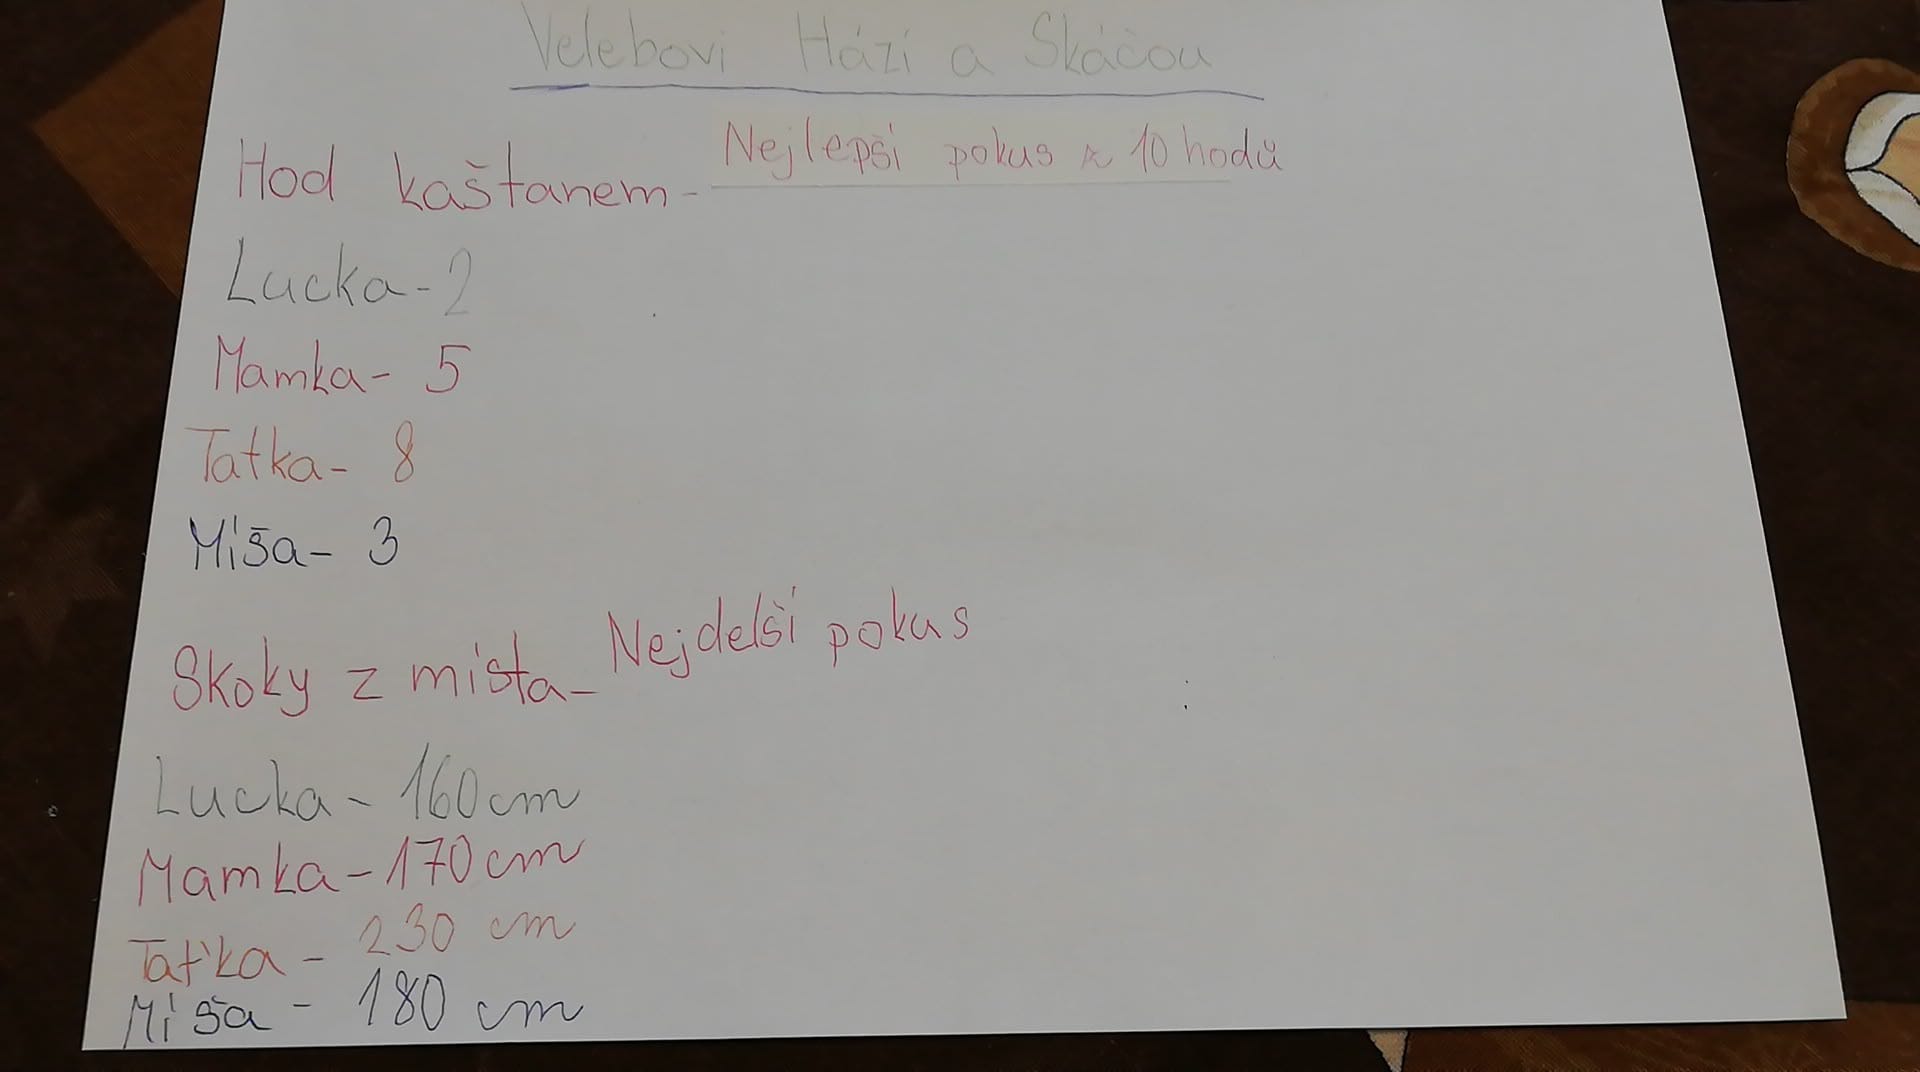 Velebovi Hází a Skáčou
Hod kaštanem- Nejlepší pokus z 10 hodů
Lucka-2
Mamka- 5
Taťka- 8
Míša- 3
Skoky z místa- Nejdelší pokus
Lucka- 160cm
Mamka-170cm
Taťka- 230 cm
Míša- 180 cm